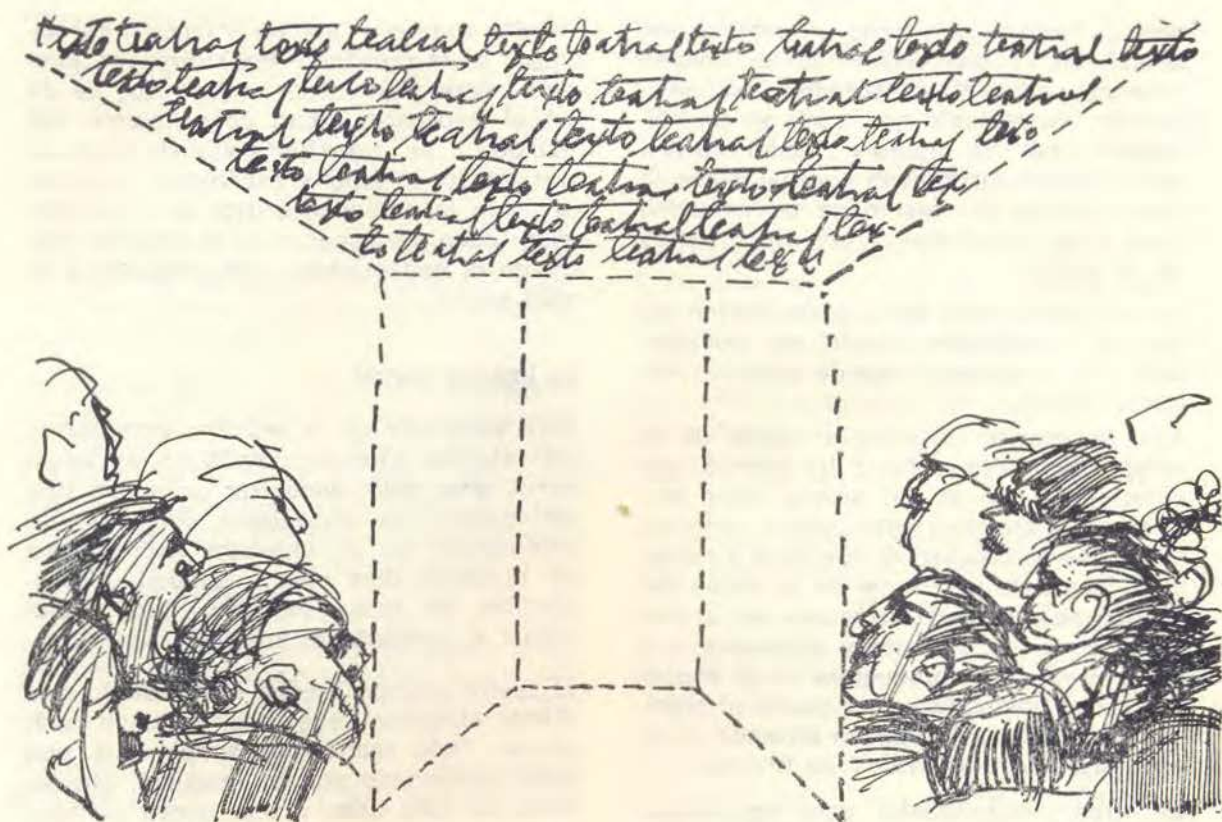 texto teatral texto teatral texto teatral texto teatral texto teatral texto
texto teatral texto teatral texto teatral teatral texto teatral
teatral texto teatral texto teatral texto teatral texto
texto teatral texto teatral texto teatral tex
texto teatral texto teatral teatral tex-
to teatral texto teatral texto